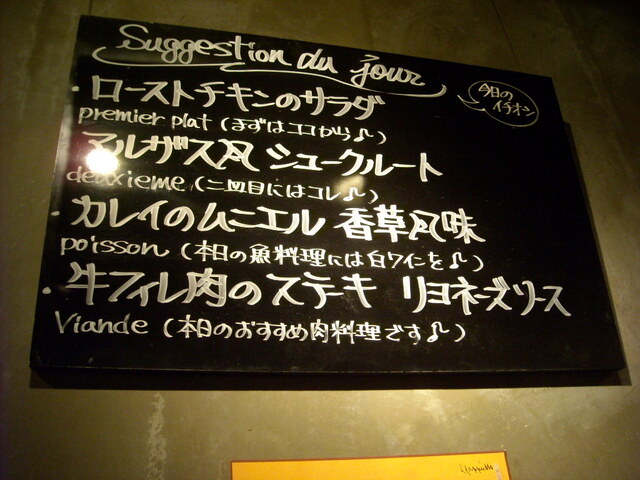 Suggestion du jour
今日の
イチオシ
・ローストチキンのサラダ
premier plat (まずはココから♪)
・アルザス風 シュークルート
deuxieme (二皿目にはコレ♪)
・カレイのムニエル 香草風味
poisson (本日の魚料理には白ワインを♪)
・牛フィレ肉のステーキ リヨネーズソース
Viande (本日のおすすめ肉料理です♪)